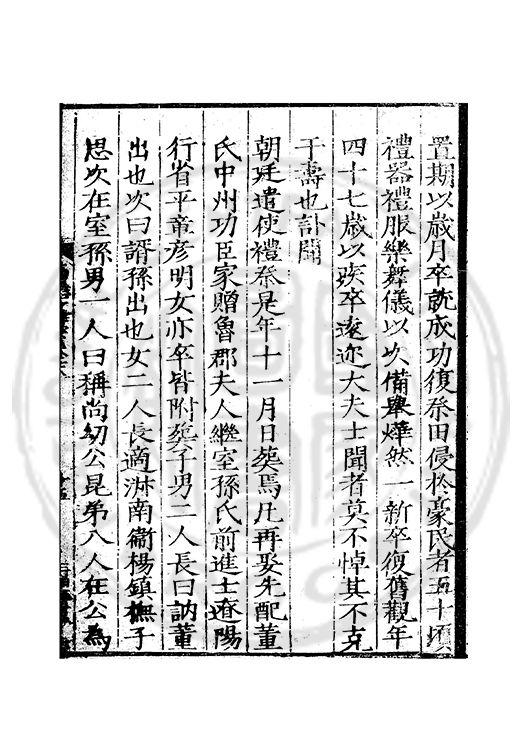 置期以歲月卒就成功復祭田侵於豪民者五十頃
禮器禮服樂舞儀以次備舉煒然一新卒復舊觀年
四十七歲以疾卒遠迩大夫士聞者莫不悼其不克
于壽也訃聞
朝廷遣使禮祭是年十一月日葬焉凡再娶先配董
氏中州功臣家贈魯郡夫人繼室孫氏前進士遼陽
行省平章彦明女亦卒皆附葬子男二人長曰訥董
出也次曰諝孫出也女二人長適淋南衞楊鎮撫子
思次在室孫男一人曰稱尚幼公昆弟八人在公為